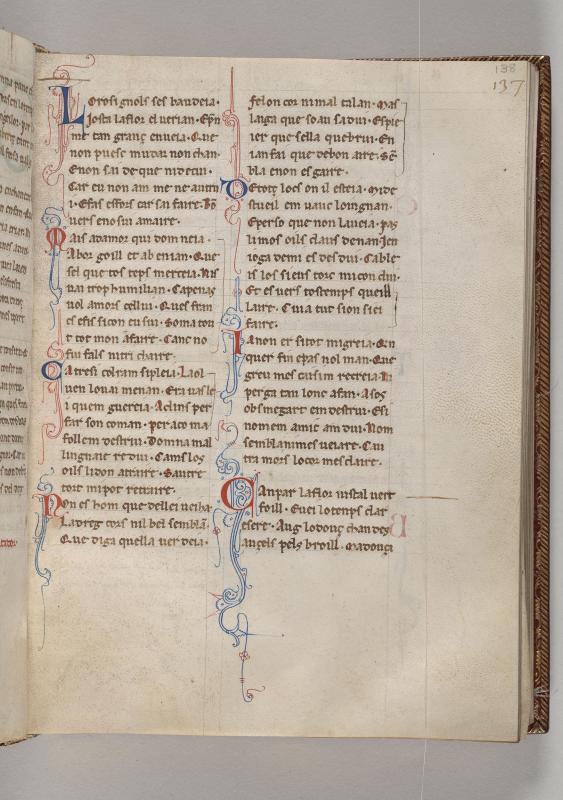 138
137
Lo rosignols ses baudeia.
Josta la flor el uerian. Epñ
me tan granç enueia. Que
non puesc mudar non chan.
Enon sai de que ni de cui.
Car eu non am me ne autrui
. Efas esfors car sai faire. Bõ
uers eno sui amaire.
Mais adamor qui domneia.
Ab orgoill et ab enian. Que
sel que tos teps merceia. Nis
uai trop humilian. Capenas
uol amors cellui. Ques fran
cs efis sicon eu sui. So ma ton
t tot mon afaire. Canc no
fui fals ni trichaire.
Catresi col ram sipleia. La ol
uen lo uai menan. Era uas le
i quem guereia. Aclins per
far son coman. per aco ma
follem destrui. Domna mal
linguaie redui. Cams los
oils li don atraire. Sautre
tort mi pot retraire.
Non es hom que de llei ueiha
La dreg cors nil bel semblã.
Que diga quella uer deia.
felon cor ni mal talan. Mas
laiga que soau sadui. Es peie
ier que sella que brui. En
ian fai que de bon aire. Sẽ
bla enon es gaire.
De totz locs on il esteia. Mide
stueil em uauc loingnan.
Eperso que non la ueia. pas
li mos oils claus denan. Jen
ioga demi es des dui. Cable
is los sieus tort mi condui.
Et es uers tostemps queill
laire. Cuia tut sion siei
faire.
Ja non er si tot migreia. En
quer fin epas nol man. Que
greu mes cui sim recreia. Ni
perga tan lonc afan. A sos
obs megart em destrui. Esi
nom em amic am dui. Nom
semblanim es ueiare. Cau
tra mors lo cor mesclaire.
Canpar la flor iustal uert
foill. E uei lo temps clar
eseré. Aug lo douç chan des
auçels pels broill. Ma douça